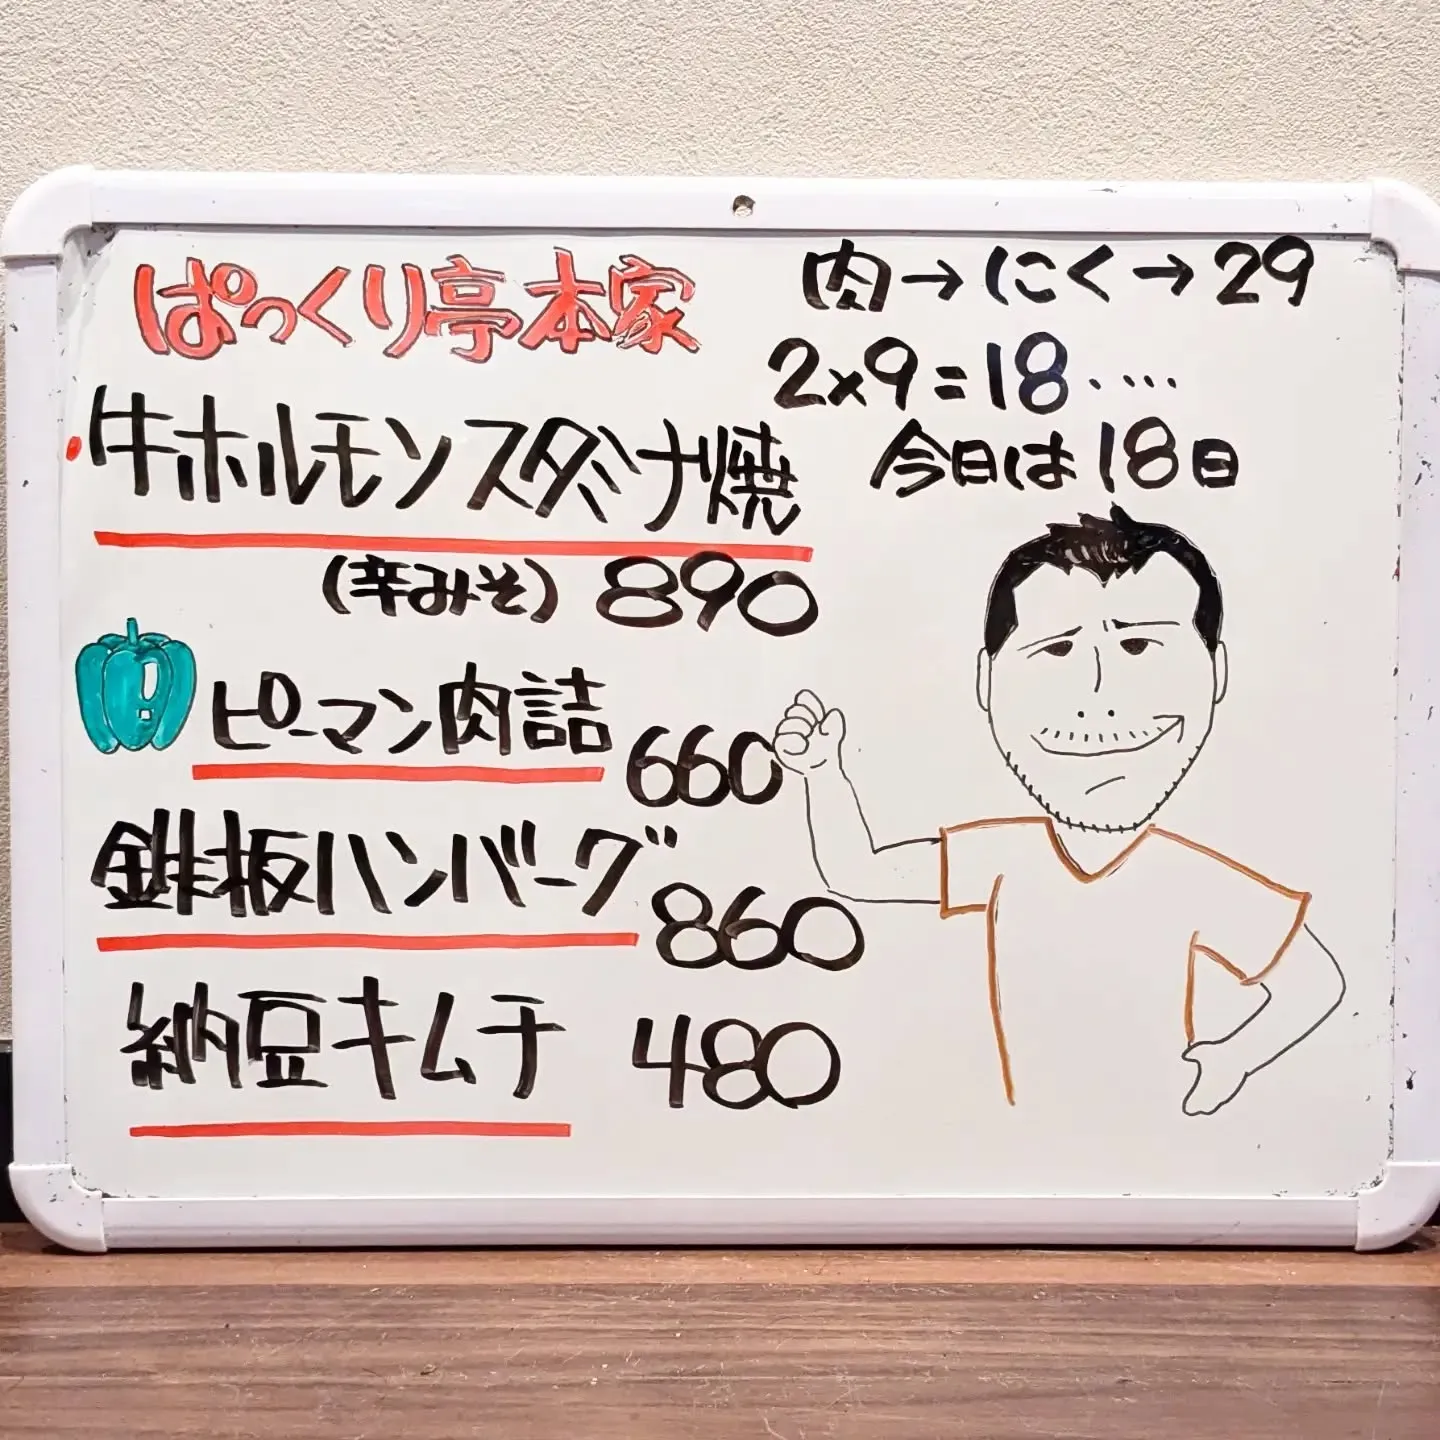 ぱっくり亭本家
肉→にく→29
2×9=18‥‥
今日は18日
・牛ホルモンスタミナ焼
(辛みそ) 890
ピーマン肉詰 660
鉄板ハンバーグ 860
納豆キムチ 480